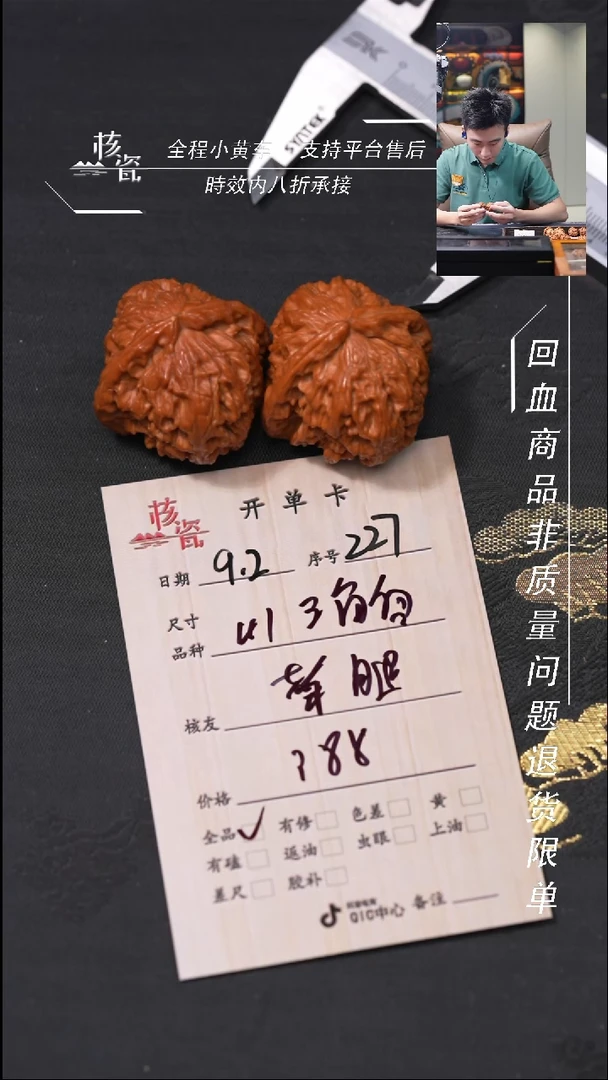 核瓷
全程小黄车 支持平台售后
時效内八折承接
SYNTEK
回血商品非质量问题退货限单
核瓷
开单卡
日期 9.2 序号 227
尺寸 41 三角白
品种
核友 腿
价格 388
全品 ✓ 有修 色差 黄
有磕 返油 虫眼 上油
差尺 胶补
抖音电商
QIC中心 备注